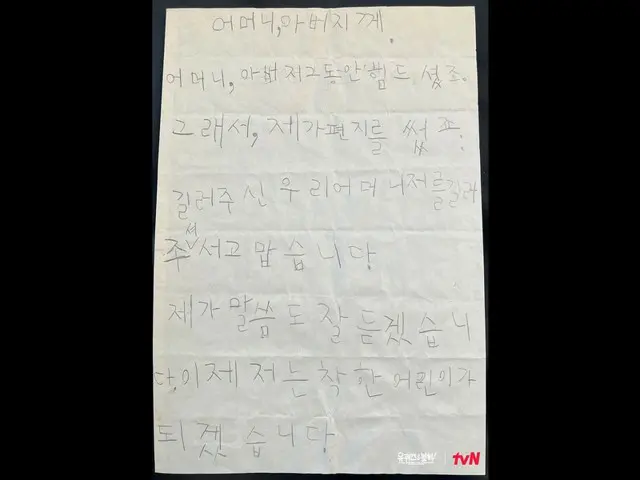 어머니,아버지께.
어머니, 아버지그동안힘드셨죠.
그래서, 제가편지를 썼죠.
길러주신 우리어머니저를길러
주셔서고맙습니다
제가 말씀도 잘 듣겠습니
다.이제 저는 착한 어린이가
되겠습니다
유퀴즈 온 더 블럭
tvN